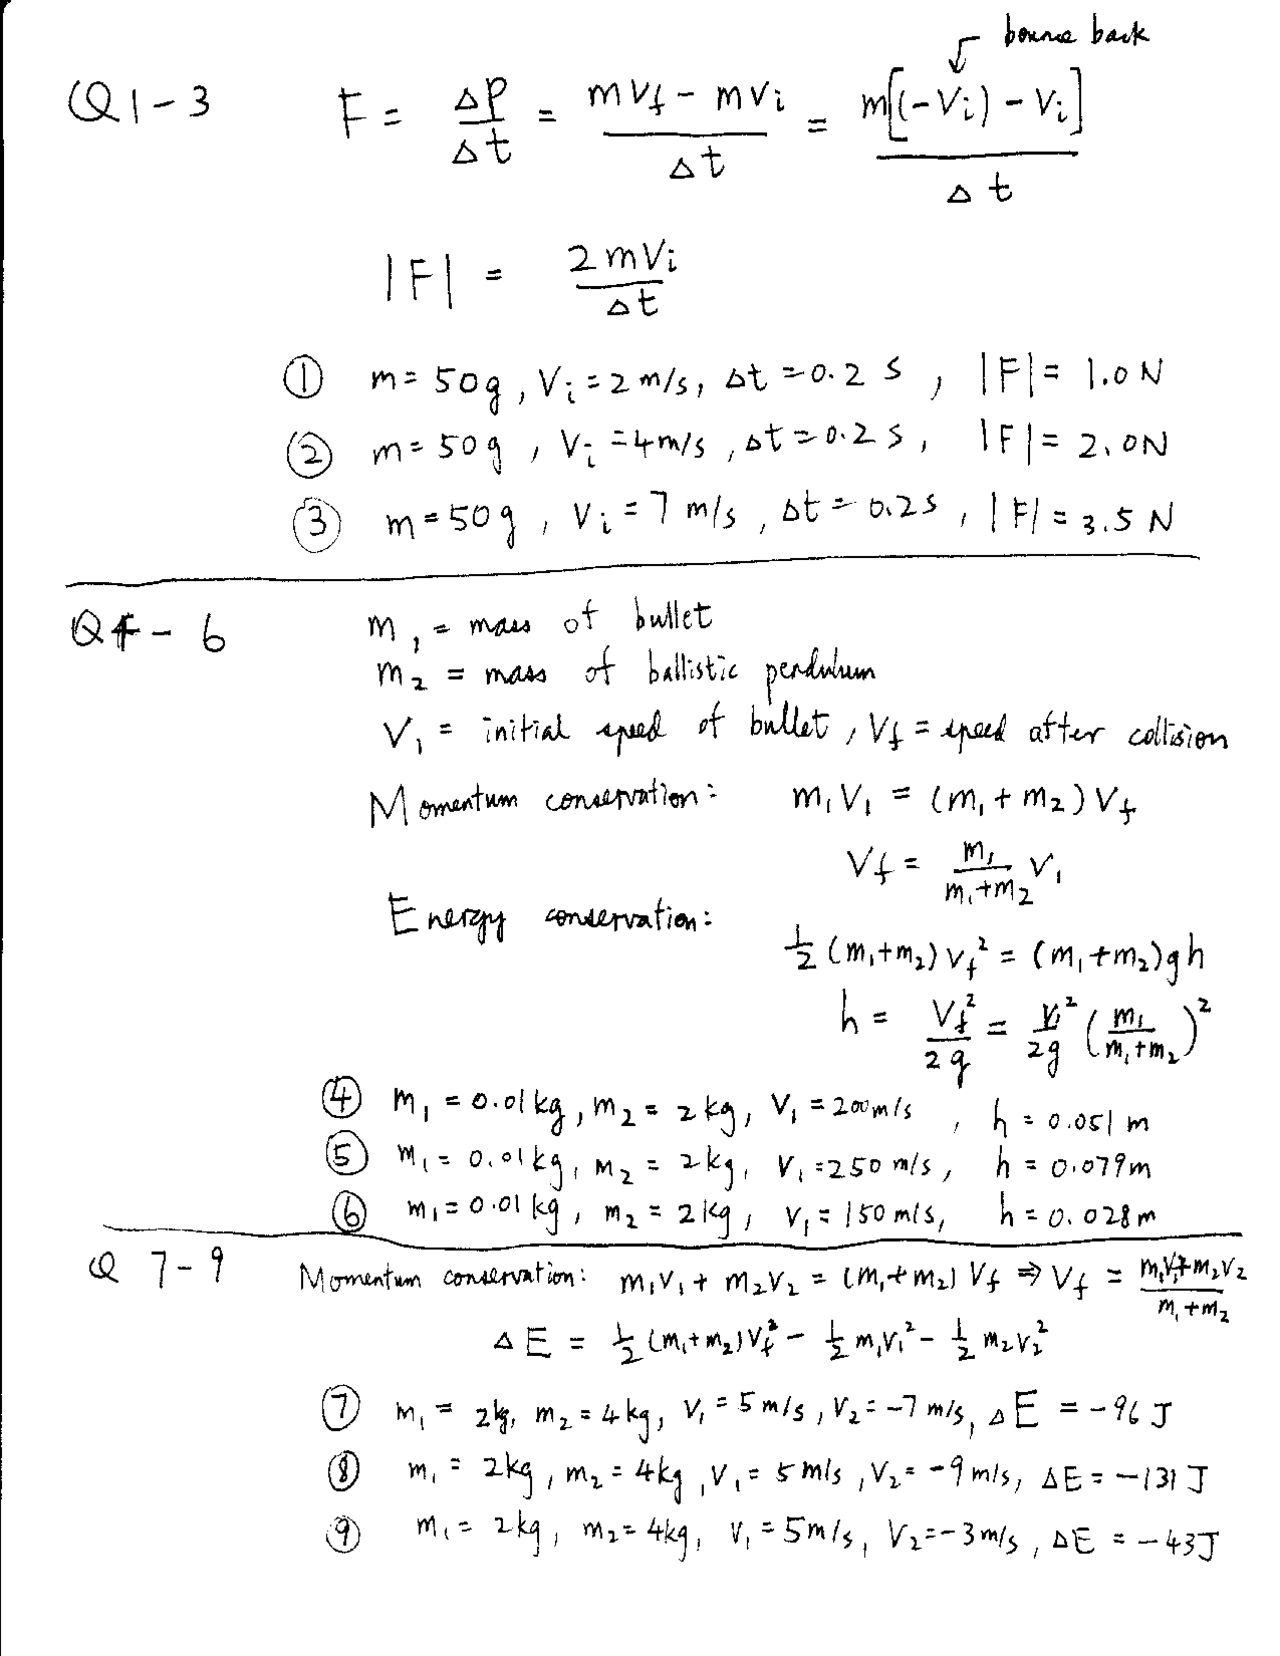 bounce back
Q1-3 F = Δp/Δt = (mVf - mVi)/Δt = m[(-Vi) - Vi]/Δt
|F| = 2mVi/Δt
① m = 50g, Vi = 2 m/s, Δt = 0.2 s, |F| = 1.0 N
② m = 50g, Vi = 4 m/s, Δt = 0.2 s, |F| = 2.0 N
③ m = 50g, Vi = 7 m/s, Δt = 0.2 s, |F| = 3.5 N
Q4-6 m₁ = mass of bullet
m₂ = mass of ballistic pendulum
V₁ = initial speed of bullet, Vf = speed after collision
Momentum conservation: m₁V₁ = (m₁ + m₂) Vf
Vf = m₁/(m₁+m₂) V₁
Energy conservation:
½ (m₁+m₂) Vf² = (m₁+m₂)gh
h = Vf²/2g = V₁²/2g (m₁/(m₁+m₂))²
④ m₁ = 0.01 kg, m₂ = 2 kg, V₁ = 200 m/s, h = 0.051 m
⑤ m₁ = 0.01 kg, m₂ = 2 kg, V₁ = 250 m/s, h = 0.079 m
⑥ m₁ = 0.01 kg, m₂ = 2 kg, V₁ = 150 m/s, h = 0.028 m
Q 7-9 Momentum conservation: m₁V₁ + m₂V₂ = (m₁+m₂) Vf ⇒ Vf = (m₁V₁+m₂V₂)/(m₁+m₂)
ΔE = ½ (m₁+m₂)Vf² - ½ m₁V₁² - ½ m₂V₂²
⑦ m₁ = 2kg, m₂ = 4kg, V₁ = 5 m/s, V₂ = -7 m/s, ΔE = -96 J
⑧ m₁ = 2kg, m₂ = 4kg, V₁ = 5 m/s, V₂ = -9 m/s, ΔE = -131 J
⑨ m₁ = 2kg, m₂ = 4kg, V₁ = 5 m/s, V₂ = -3 m/s, ΔE = -43 J